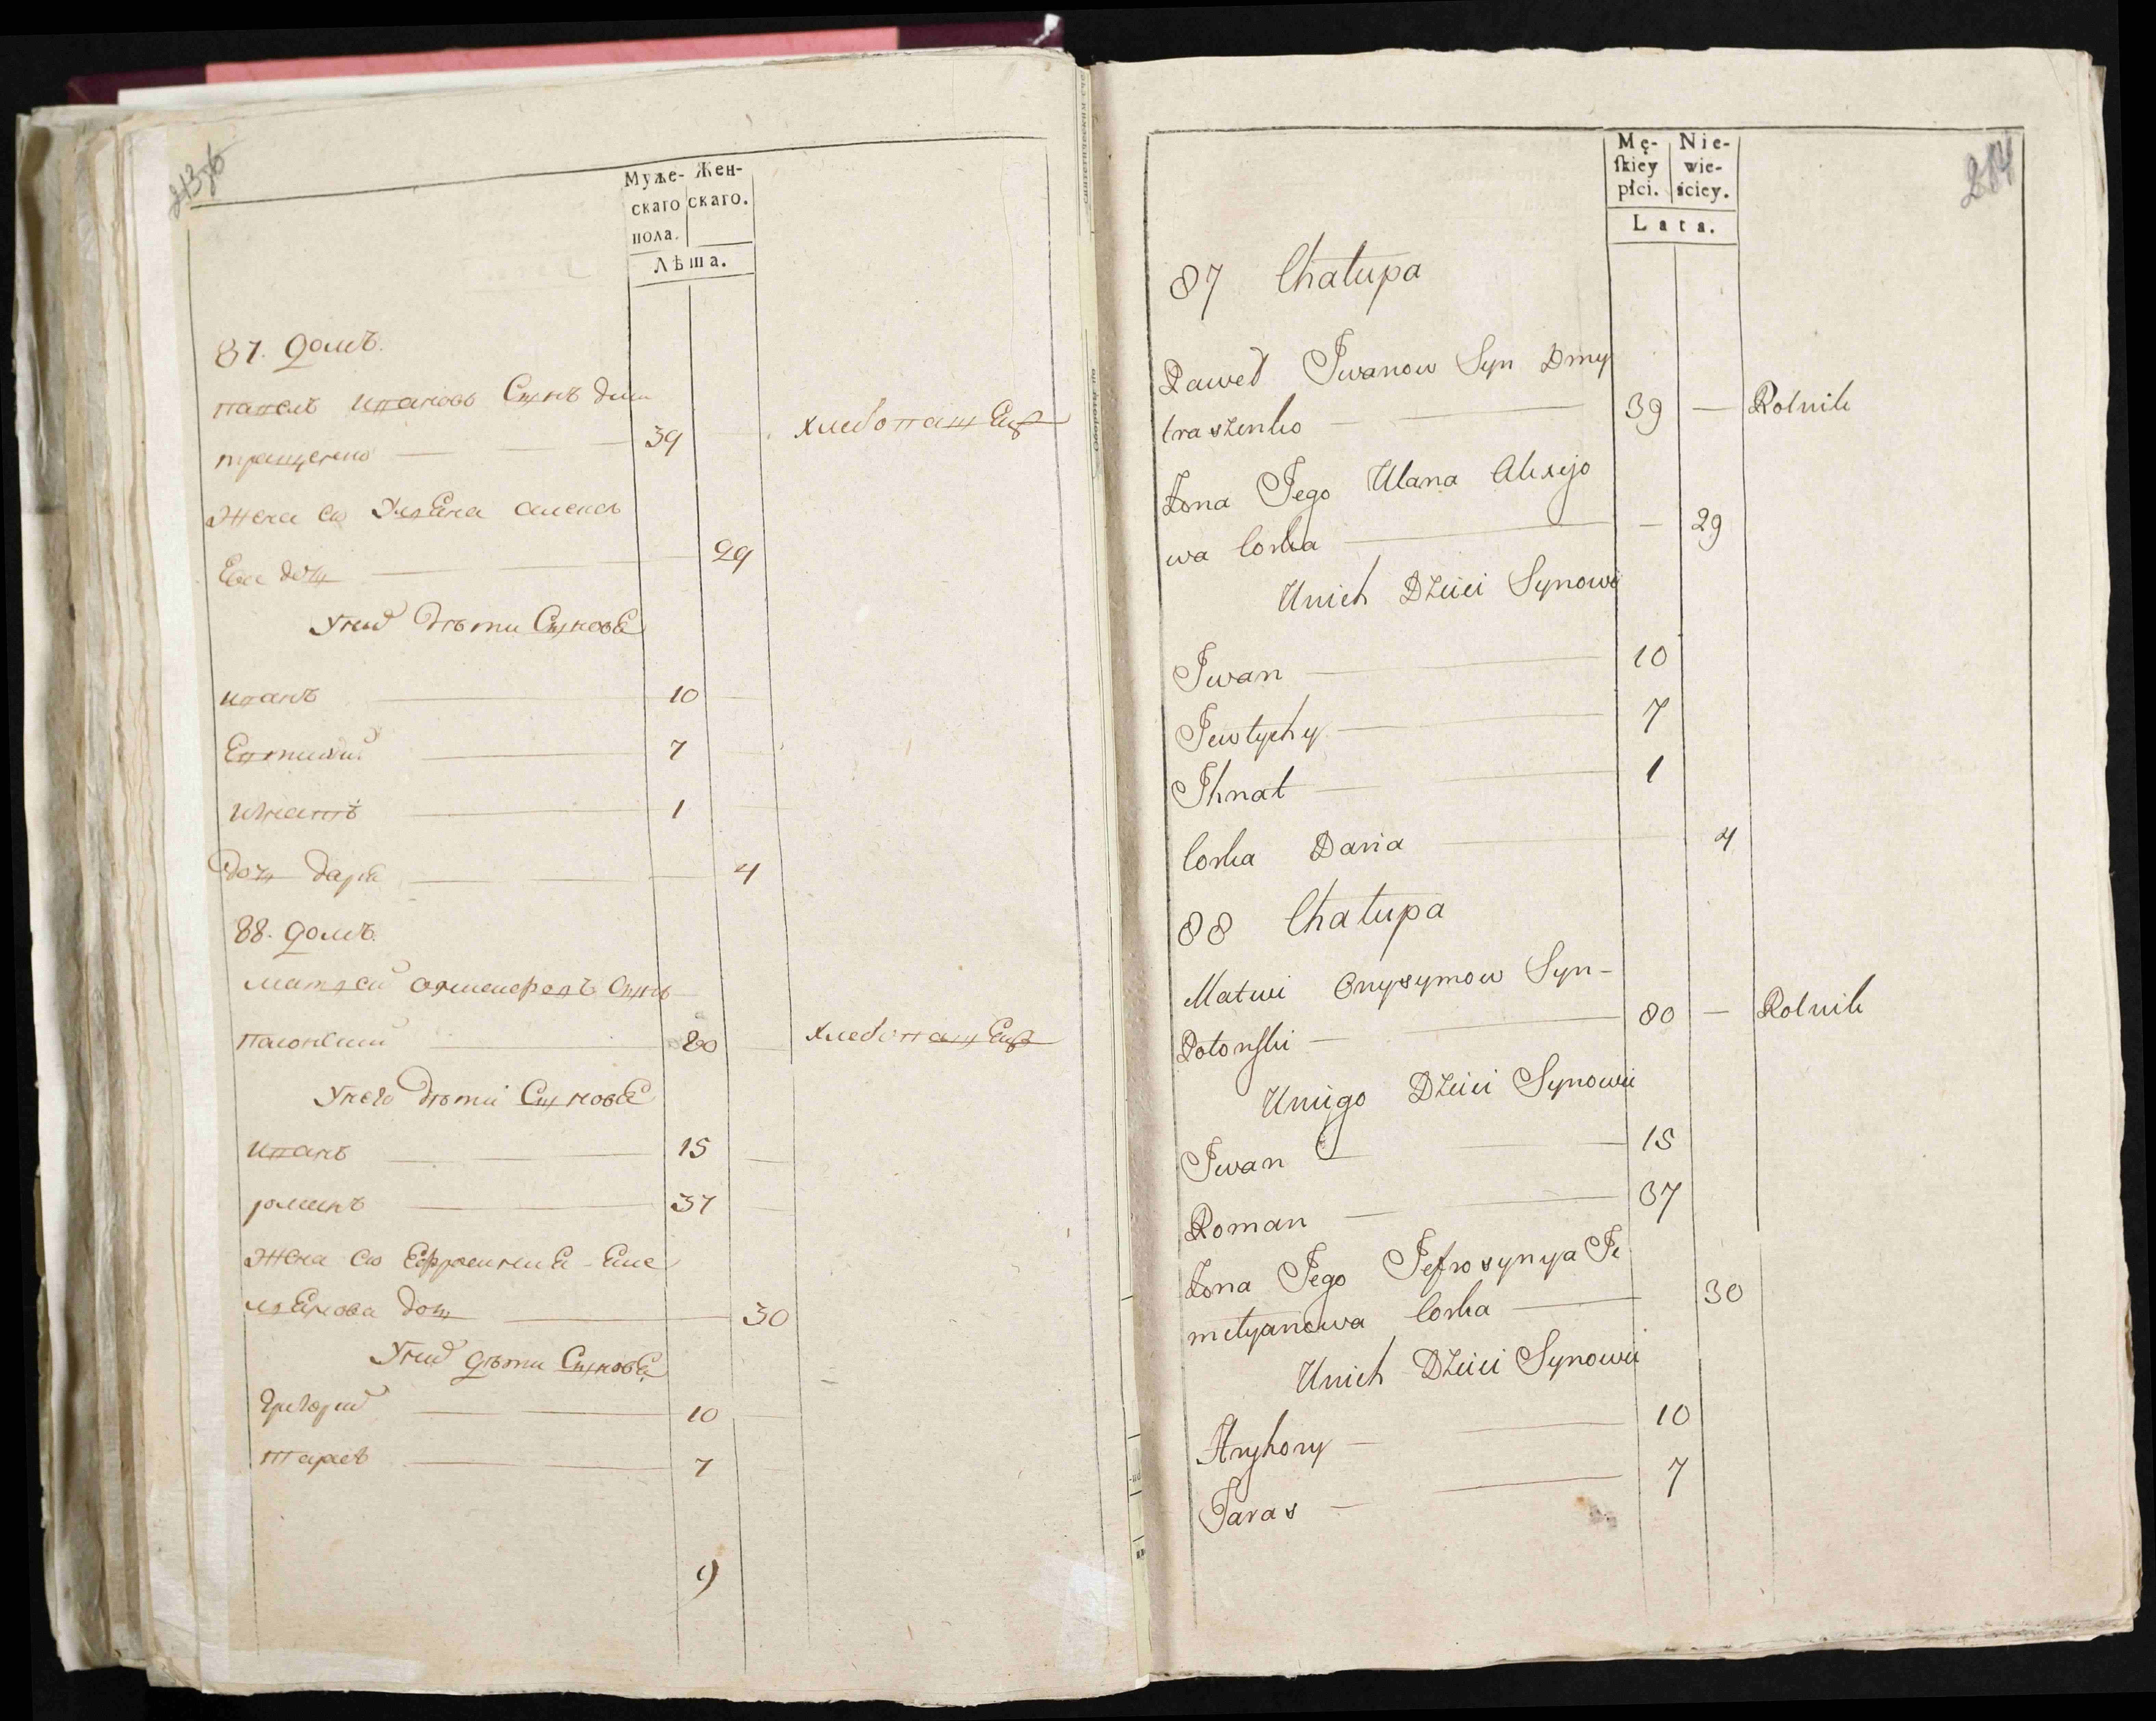 213об
Муже- Жен-
скаго скаго.
пола.
Лѣта.
87. домъ.
павелъ ивановъ Сынъ дми
тращенко — 39 — хлебопашЕц
Жена ею УлЕяна алексѣ
Ева доч — 29
Уних дѣти СыновЕ
иванъ — 10 —
Евтихий — 7 —
игнатъ — 1 —
доч даря — 4
88. домъ.
матвей Сынъ
полонский — 80 — хлебопашЕц
Унего дѣти СыновЕ
иванъ — 15 —
романъ — 37 —
Жена ею Ефросиния Еме
лянова доч — 30
Уних дѣти СыновЕ
григорий — 10 —
тарасъ — 7
9
214
Mę- Nie-
skiey wie-
płci. sciey.
Lata.
87 Chałupa
Paweł Jwanow Syn Dmy
traszenko — 39 — Rolnik
Żona Jego Ulana Alexijo
wa Corka — 29
Unich Dzieci Synowi
Jwan — 10
Jewtychy — 7
Jhnat — 1
Corka Daria — 4
88 Chałupa
Matwi Onysymow Syn -
Połonski — 80 — Rolnik
Uniego Dzieci Synowie
Jwan — 15
Roman — 37
Żona Jego Jefrosynya Je
melyanowa Corka — 30
Unich Dzieci Synowie
Hryhory — 10
Taras — 7